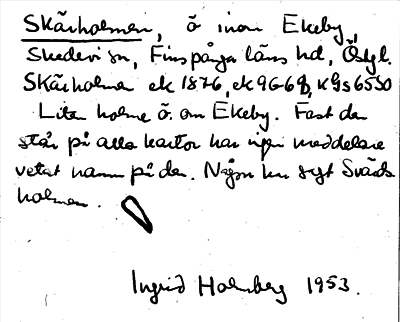 Skärholmen, ö inom Ekeby,
Skedevi sn, Finspånga läns hd, Östgl.
Skärholmen ek 1876, ek 9G6g, KGs 6530
Liten holme ö. om Ekeby. Fast den
står på alla kartor har ingen meddelare
vetat namn på den. Någon har sagt Svärds
holmen.
Ingrid Holmberg 1953.